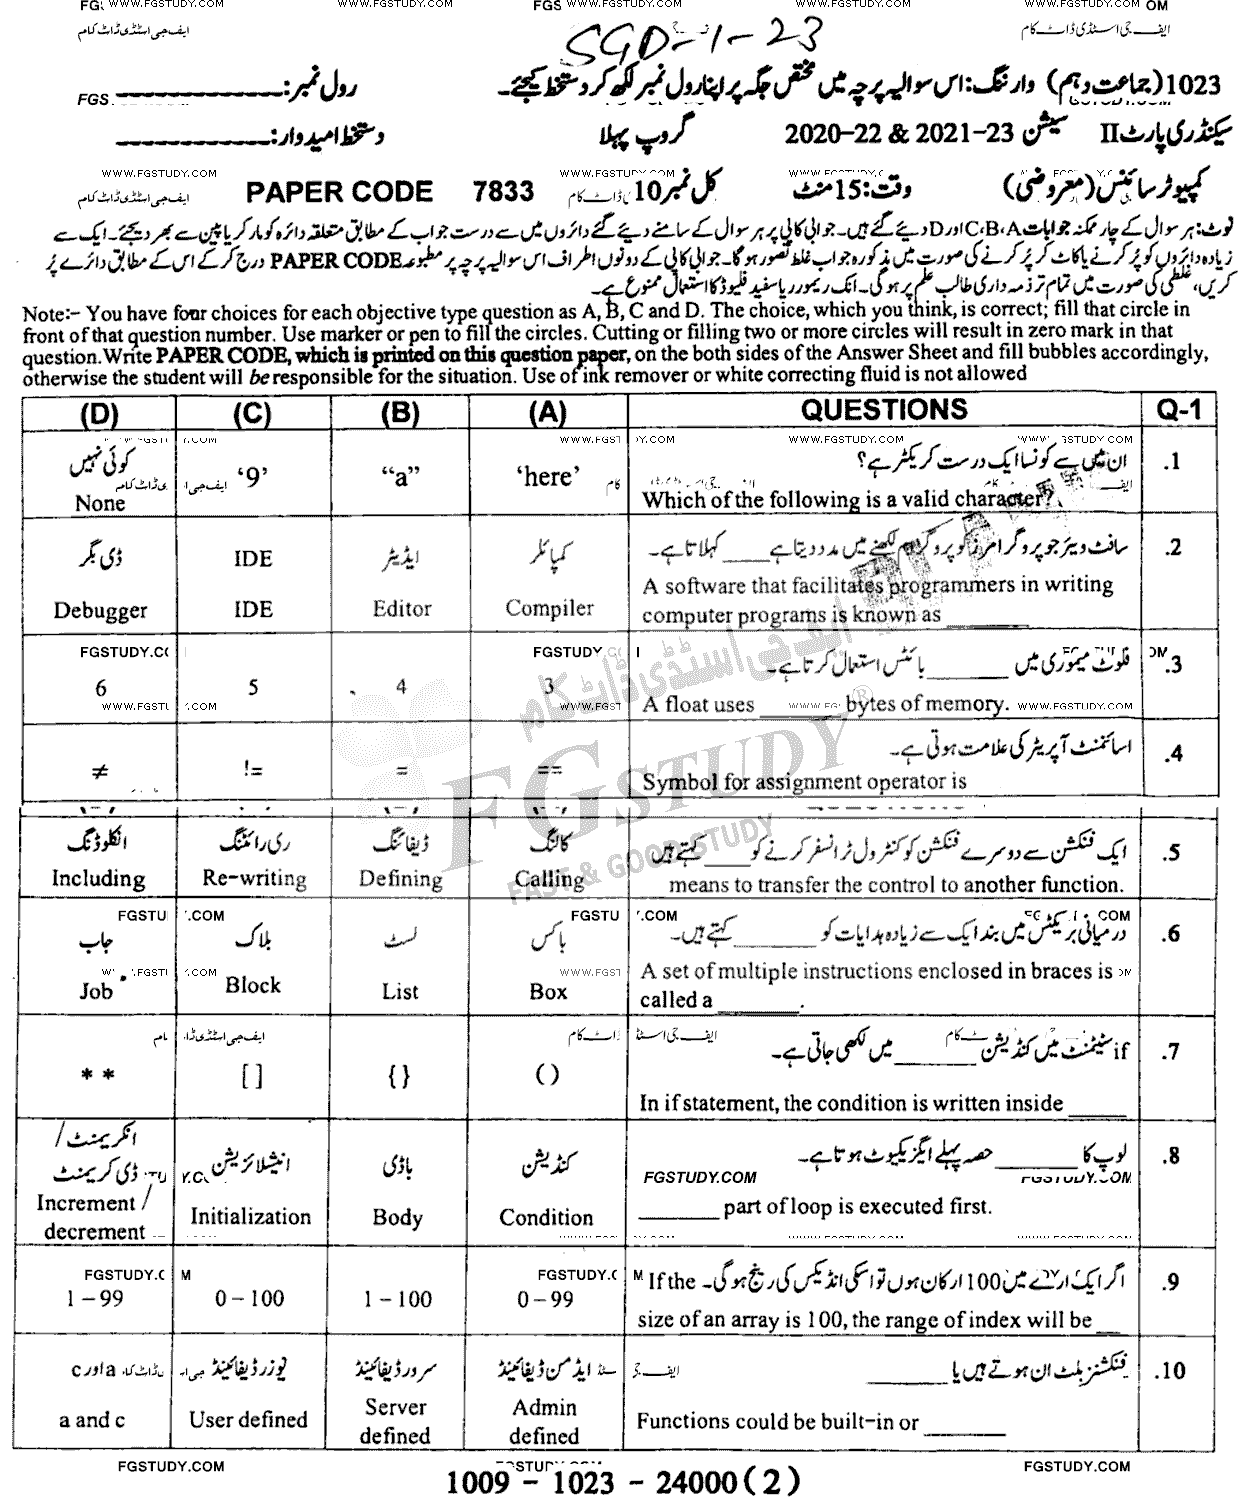 FG WWW.FGSTUDY.COM WWW.FGSTUDY.COM FGS WWW.FGSTUDY.COM WWW.FGSTUDY.COM WWW.FGSTUDY.COM OM
ایف جی اسٹڈی ڈاٹ کام ایف جی اسٹڈی ڈاٹ کام
SGD-1-23
1023 (جماعت دہم) وارننگ: اس سوالیہ پرچہ میں مختص جگہ پر اپنا رول نمبر لکھ کر دستخط کیجئے۔ رول نمبر: ____________
سیکنڈری پارٹ II سیشن 2020-22 & 2021-23 گروپ پہلا دستخط امیدوار: ____________
WWW.FGSTUDY.COM
کمپیوٹر سائنس (معروضی) وقت: 15 منٹ کل نمبر 10 PAPER CODE 7833
نوٹ: ہر سوال کے چار ممکنہ جوابات C،B،A اور D دیئے گئے ہیں۔ جوابی کاپی پر ہر سوال کے سامنے دیئے گئے دائروں میں سے درست جواب کے مطابق متعلقہ دائرہ کو مارکر یا پین سے بھر دیجئے۔ ایک سے
زیادہ دائروں کو پُر کرنے یا کاٹ کر پُر کرنے کی صورت میں مذکورہ جواب غلط تصور ہوگا۔ جوابی کاپی کے دونوں اطراف اس سوالیہ پرچہ پر مطبوعہ PAPER CODE درج کر کے اس کے مطابق دائرے پُر
کریں، غلطی کی صورت میں تمام تر ذمہ داری طالب علم پر ہوگی۔ انک ریموور یا سفید فلیوڈ کا استعمال ممنوع ہے۔
Note:- You have four choices for each objective type question as A, B, C and D. The choice, which you think, is correct; fill that circle in
front of that question number. Use marker or pen to fill the circles. Cutting or filling two or more circles will result in zero mark in that
question. Write PAPER CODE, which is printed on this question paper, on the both sides of the Answer Sheet and fill bubbles accordingly,
otherwise the student will be responsible for the situation. Use of ink remover or white correcting fluid is not allowed
(D) (C) (B) (A) QUESTIONS Q-1
ان میں سے کونسا ایک درست کریکٹر ہے؟ .1
کوئی نہیں
None '9' "a" 'here' Which of the following is a valid character?
سافٹ ویئر جو پروگرامرز کو پروگرام لکھنے میں مدد دیتا ہے _____ کہلاتا ہے۔ .2
ڈی بگر IDE ایڈیٹر کمپائلر
A software that facilitates programmers in writing
Debugger IDE Editor Compiler
computer programs is known as ________
FGSTUDY.CO FGSTUDY.CO
فلوٹ میموری میں ________ بائٹس استعمال کرتا ہے۔ .3
6 5 4 3
A float uses ________ bytes of memory. WWW.FGSTUDY.COM
اسائنمنٹ آپریٹر کی علامت ہوتی ہے۔ .4
≠ != = ==
Symbol for assignment operator is
ایک فنکشن سے دوسرے فنکشن کو کنٹرول ٹرانسفر کرنے کو ____ کہتے ہیں .5
انکلوڈنگ ری رائٹنگ ڈیفائننگ کالنگ
Including Re-writing Defining Calling means to transfer the control to another function.
درمیانی بریکٹس میں بند ایک سے زیادہ ہدایات کو ________ کہتے ہیں۔ .6
جاب بلاک لسٹ باکس
A set of multiple instructions enclosed in braces is
Job Block List Box called a ________.
if سٹیٹمنٹ میں کنڈیشن ________ میں لکھی جاتی ہے۔ .7
* * [ ] { } ( )
In if statement, the condition is written inside ______
لوپ کا ________ حصہ پہلے ایگزیکیوٹ ہوتا ہے۔ .8
انکریمنٹ/
ڈی کریمنٹ انیشلائزیشن باڈی کنڈیشن
FGSTUDY.COM
Increment /
decrement Initialization Body Condition ________ part of loop is executed first.
اگر ایک ارے میں 100 ارکان ہوں تو اسکی انڈیکس کی رینج ہوگی۔ If the .9
1 – 99 0 – 100 1 – 100 0 – 99 size of an array is 100, the range of index will be __
فنکشنز بلٹ ان ہوتے ہیں یا ________ .10
a اور c یوزر ڈیفائینڈ سرور ڈیفائینڈ ایڈمن ڈیفائینڈ
a and c User defined Server defined Admin defined Functions could be built-in or ________
FGSTUDY.COM FGSTUDY.COM
1009 - 1023 - 24000 (2)
ایف جی اسٹڈی ڈاٹ کام
FGSTUDY®
FAST & GOOD STUDY